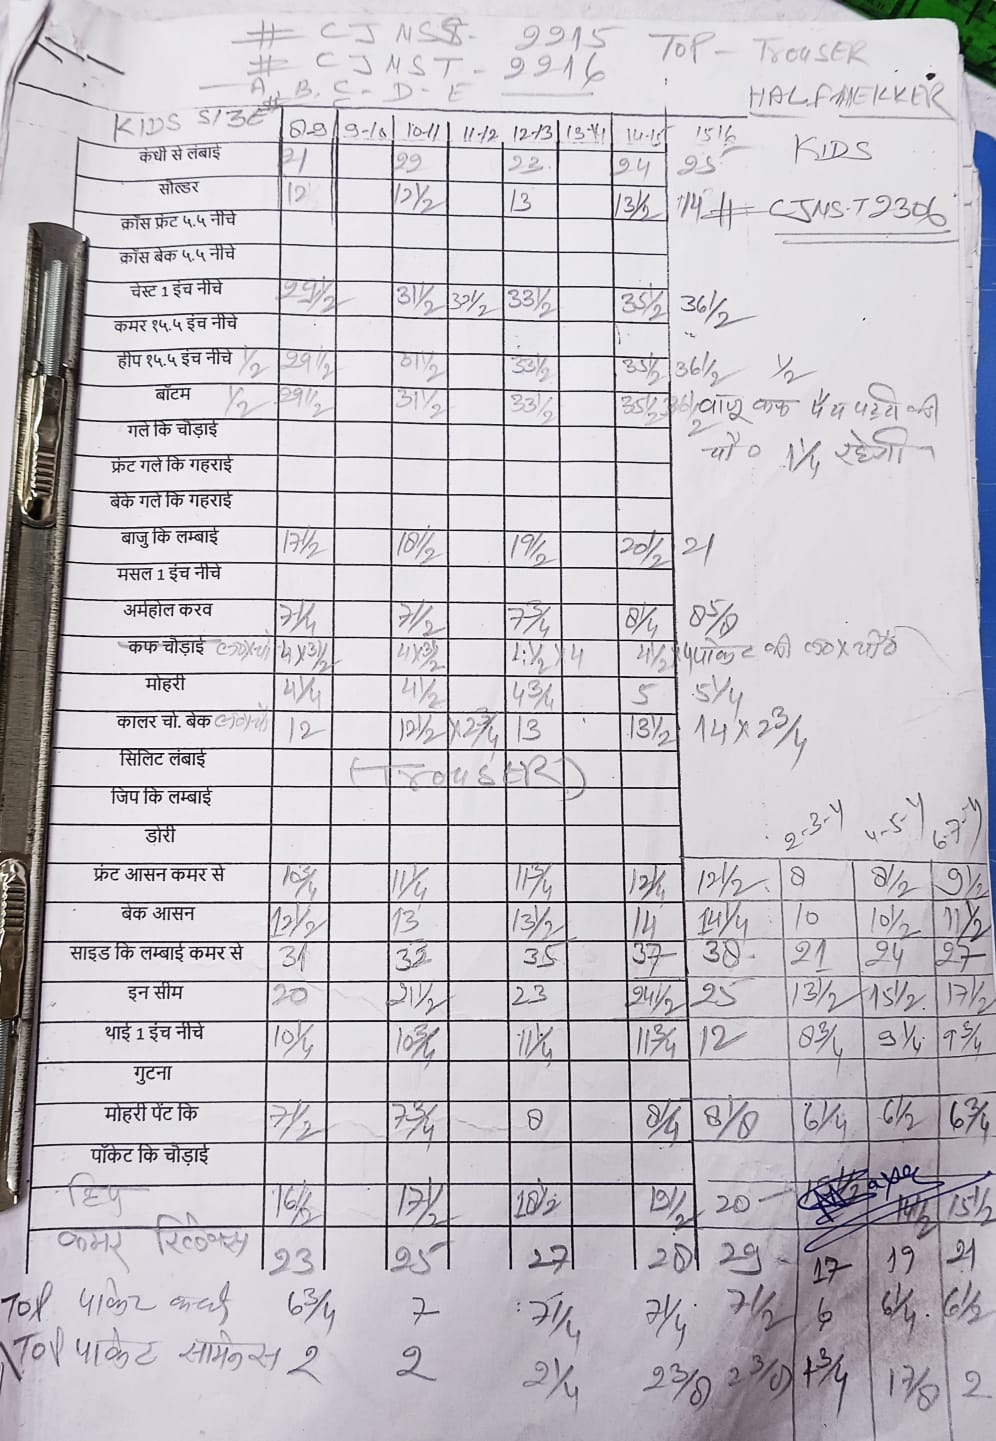 # CJNSS- 2215 TOP - TROUSER
# CJNST- 2216
A, B, C - D - E HALF NEKKER
KIDS SIZE 8-9 9-10 10-11 11-12 12-13 13-14 14-15 15 16 KIDS
कंधी से लंबाई 21 22 23 24 25
सोल्डर 12 12½ 13 13½ 14 # CJNS-T2306
क्रॉस फ्रंट ५.५ नीचे
क्रॉस बेक ५.५ नीचे
चेस्ट 1 इंच नीचे 29½ 31½ 32½ 33½ 35½ 36½
कमर १५.५ इंच नीचे
हीप १५.५ इंच नीचे ½ 29½ 31½ 33½ 35½ 36½ ½
बॉटम ½ 29½ 31½ 33½ 35½ 36½ बाजू कफ
गले कि चौड़ाई चौ० 1¼ रहेगी
फ्रंट गले कि गहराई
बेके गले कि गहराई
बाजु कि लम्बाई 17½ 18½ 19½ 20½ 21
मसल 1 इंच नीचे
अर्महोल करव 7¼ 7½ 7¾ 8¼ 8⅝
कफ चौड़ाई 4×3½ 4×3½ 4½×4 4½×4 पॉकेट की
मोहरी 4¼ 4½ 4¾ 5 5¼
कालर चो. बेक 12 12½×2¾ 13 13½ 14×2¾
सिलिट लंबाई (TROUSER)
जिप कि लम्बाई
ड़ोरी 2-3-Y 4-5-Y 6-7-Y
फ्रंट आसन कमर से 10¾ 11¼ 11¾ 12¼ 12½ 8 8½ 9½
बेक आसन 12½ 13 13½ 14 14¼ 10 10½ 11½
साइड कि लम्बाई कमर से 31 33 35 37 38 21 24 27
इन सीम 20 21½ 23 24½ 25 13½ 15½ 17½
थाई 1 इंच नीचे 10¼ 10¾ 11¼ 11¾ 12 8¾ 9¼ 9¾
गुटना
मोहरी पेंट कि 7½ 7¾ 8 8¼ 8⅛ 6¼ 6½ 6¾
पॉकेट कि चौड़ाई
हिप 16½ 17½ 18½ 19½ 20 14½ 15½
कमर रिलेक्स 23 25 27 28 29 17 19 21
TOP पॉकेट 6¾ 7 7¼ 7¼ 7½ 6 6¼ 6½
TOP पॉकेट 2 2 2¼ 2⅜ 2⅜ 1¾ 1⅞ 2